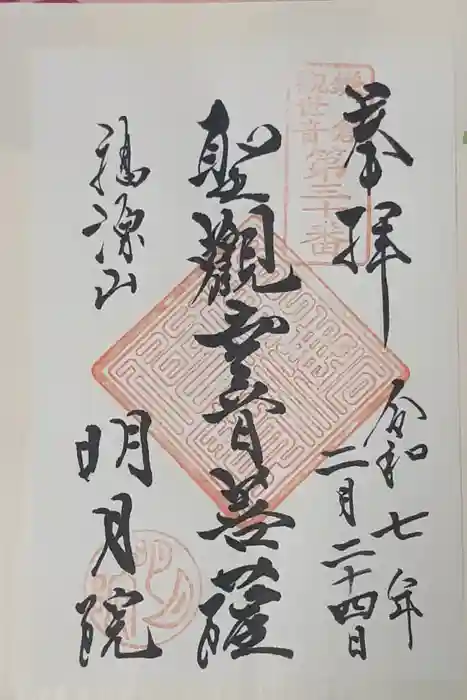 奉拝
鎌倉
観世音
第三十番
令和七年
二月二十四日
聖觀世音菩薩
福源山
明月院